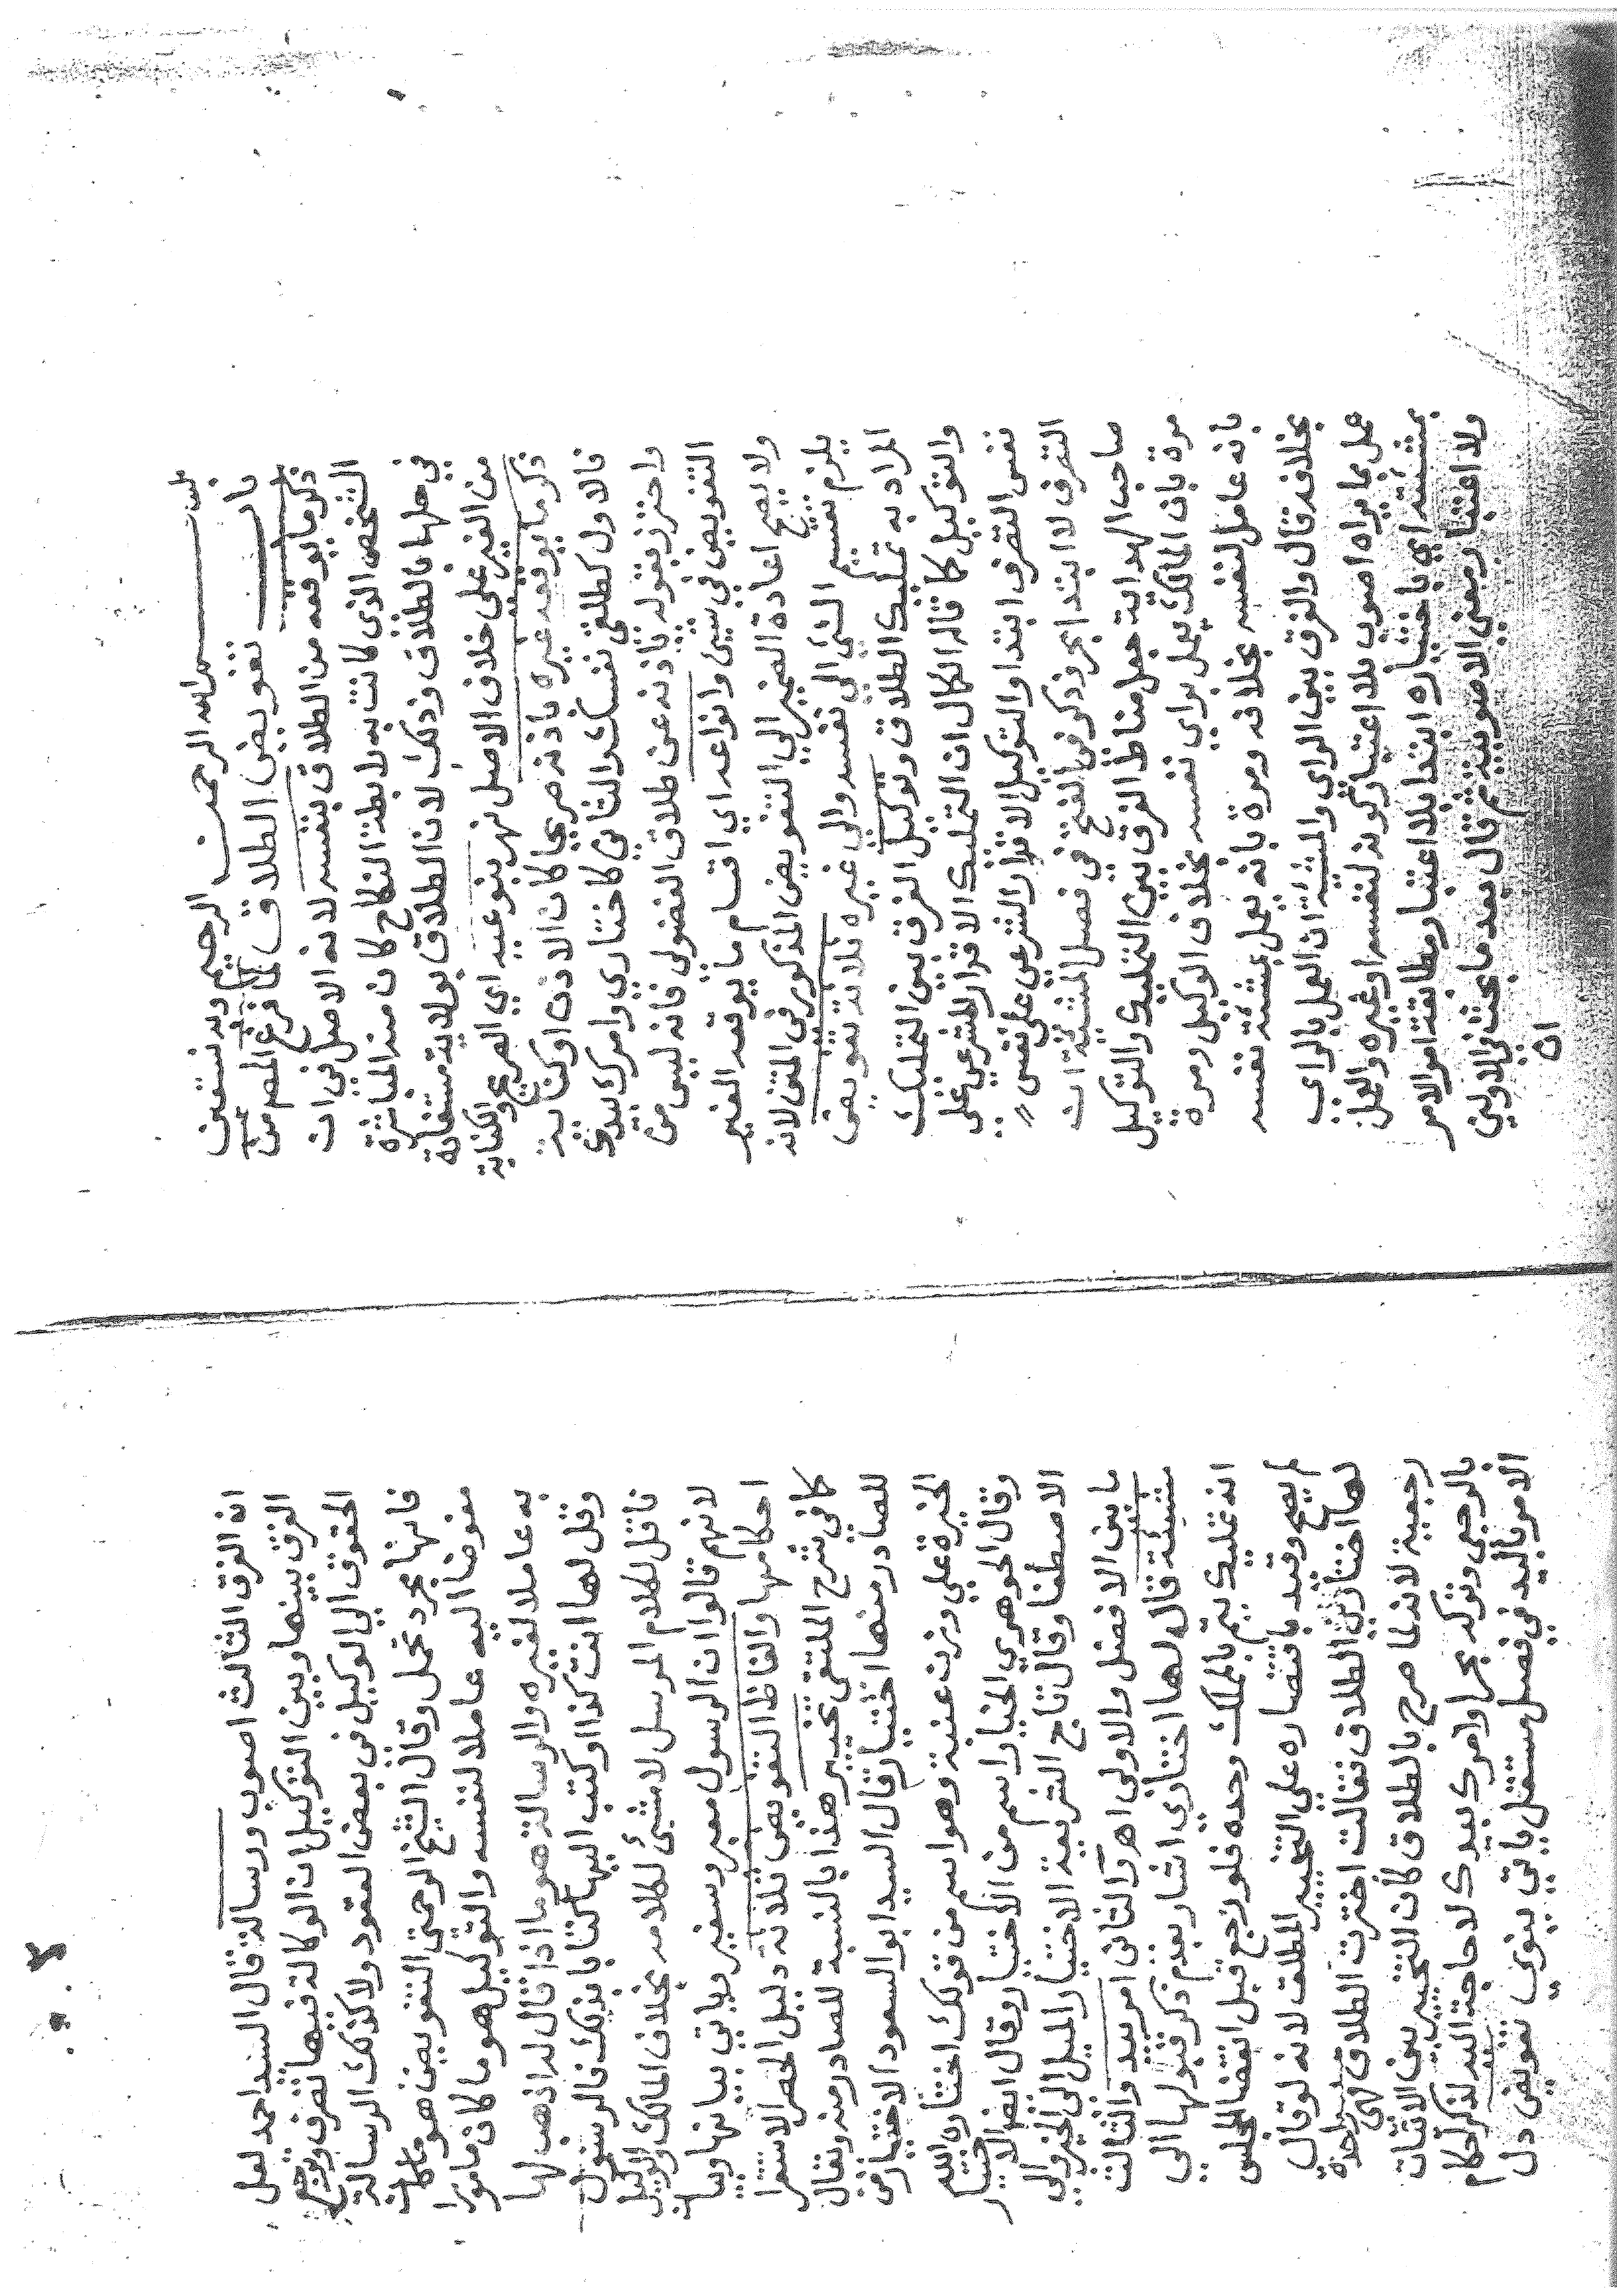 بسم الله الرحمن الرحيم وبه نستعين
باب تفويض الطلاق لما فرغ المصم من
ذكر ما يوقعه من الطلاق بنفسه لانه الاصل في ان
الشخص الذي كانت به لا بطة النكاح كان منه المباشرة
في حلها بالطلاق وذلك لان الطلاق بولاية مستفادة
من الغير على خلاف الاصل نهر بنوعيه اي الصريح والكناية
ذكر ما يوقعه غيره باذنه صريحا كان الاذن او كناية
فالاول كطلقي نفسك والثاني كاختاري وامرك بيدك
واحترز بقوله باذنه عن طلاق الفضولي فانه ليس من
التفويض في شيئ وانواعه اي اقسام ما يوقعه الغير
ولا يصح اعادة الضمير الى التفويض المذكور في المتن لانه
يلزم تقسيم الشئ الى نفسه والى غيره ثلاثة تفويض
المراد به تمليك الطلاق وتوكيل الفرق بين التمليك
والتوكيل كما قاله الكمال ان التمليك الاقرار الشرعي على
نفس التصرف ابتدا والتوكيل الاقرار الشرعي على نفس
التصرف لا ابتدا بحر وذكر في الفتح في فصل المشيئة ان
صاحب الهداية جعل مناط الفرق بين التمليك والتوكيل
مرة بان المالك يعمل براي نفسه بخلاف الوكيل ومرة
بانه عامل لنفسه بخلافه ومرة بانه يعمل بمشئة نفسه
بخلافه قال والفرق بين الراي والمشئة ان العمل بالراي
عمل بما يراه اصوب بلا اعتبار كونه لنفسه او غيره والعمل
بمشئته اي باختياره ابتدا بلا اعتبار مطابقة امر الامر
ولا اعتبار معنى الاصوبية ثم قال بعد ما بحث في الاولين
ان
انه الفرق الثالث اصوب ورسالة قال السيد احمد لعل
الفرق بينها وبين التوكيل ان الوكالة فيها تصرف وترجع
الحقوق الى الوكيل في بعض العقود ولا كذلك الرسالة
فانها مجرد تحمل وقال الشيخ الرحمتي التفويض هو ما كان
مفوضا اليه عاملا لنفسه والتوكيل هو ما كان مامورا
به عاملا لغيره والرسالة هو ما اذا قال له اذهب لها
وقل لها انت كذا او كتب اليها كتابا بذلك فالرسول
ناقل لكلام المرسل لا منشئ لكلامه بخلاف المالك والوكيل
لانهم قالوا ان الرسول معبر وسفير وياتي بيانها وبيان
احكامها والفاظ التفويض ثلاثة دليل الحصر الاستقرا
كما في شرح الملتقى تخيير هذا بالنسبة للصادر منه وتعال
للصادر منها اختيار قال السيد ابو السعود الاختيار من
الخيرة على وزن عنبة وهو اسم من قولك اختاره الله
وقال الجوهري الخيار اسم من الاختيار وقال ايضا الاختيار
الاصطفا وقال تاج الشريعة الاختيار الميل الى الخير والى
ما بين الافضل والاولى اهـ والثاني امر بيد والثالث
مشيئة قال لها اختاري اشار بعدم ذكر قبولها الى
انه تمليك يتم بالملك وحده فلو رجع قبل انقضا المجلس
لم يصح وقيد باقتصاره على التخيير المطلق لانه لو قال
لها اختاري الطلاق فقالت اخترت الطلاق فهي واحدة
رجعية لانه لما صرح بالطلاق كان التخيير بين الاتيان
بالرجعي وتركه بحر او امرك بيدك لا حاجة اليه لذكر احكام
الامر باليد في فصل مستقل ياتي ينوي تفويض دل